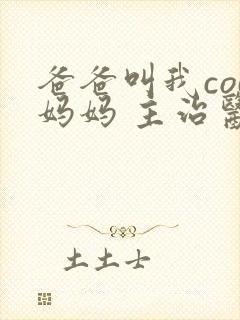 爸爸叫我co
妈妈 主治醫
土土士